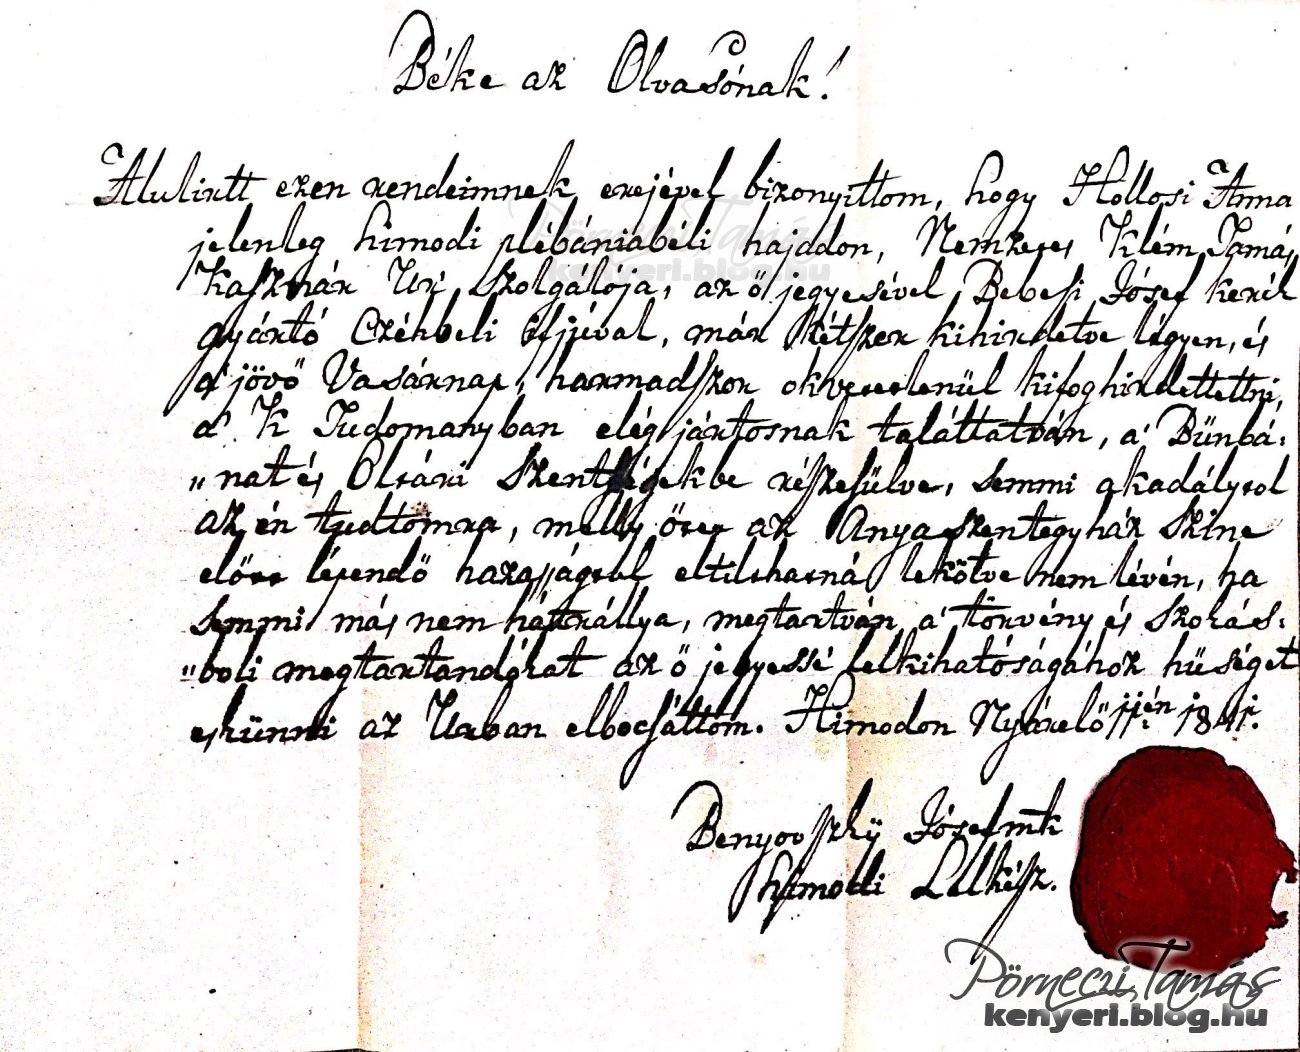 Béke az Olvasónak!
Alulirtt ezen rendeimnek erejével bizonyittom, hogy Hollosi Anna
jelenleg himodi plébániabéli hajadon, Nemzetes Klém Tamás
Kasznár Ur, szolgáloja, az ő jegyesével Bebesi Jósef kerék
gyártó Czéhbeli ifjúval, már kétszer kihirdetve légyen, és
a' jövő Vasárnap, harmadszor okvetetlenül kifoghirdettettni,
a' K Tudomanyban elég jártosnak taláttatván, a' Bünbá:
„nat és Oltári Szentségekbe részesülve, semmi akadálytol
az én tudtomra, melly őtet az Anyaszentegyház Szine
előtt lépendő házasságtul eltilthatná lekötve nem lévén, ha
semmi más nem hátrállya, megtartván a' törvény és szokás:
„boli megtartandókat az ő jegyessé lelkihatóságához hüséget
eskünni az Urban elbocsáttom. Himodon Nyárelő jjén 1841.
Benyovszky Jósef mk
himodi Lelkész.
Pörneczi Tamás
kenyeri.blog.hu
Pörneczi Tamás
kenyeri.blog.hu